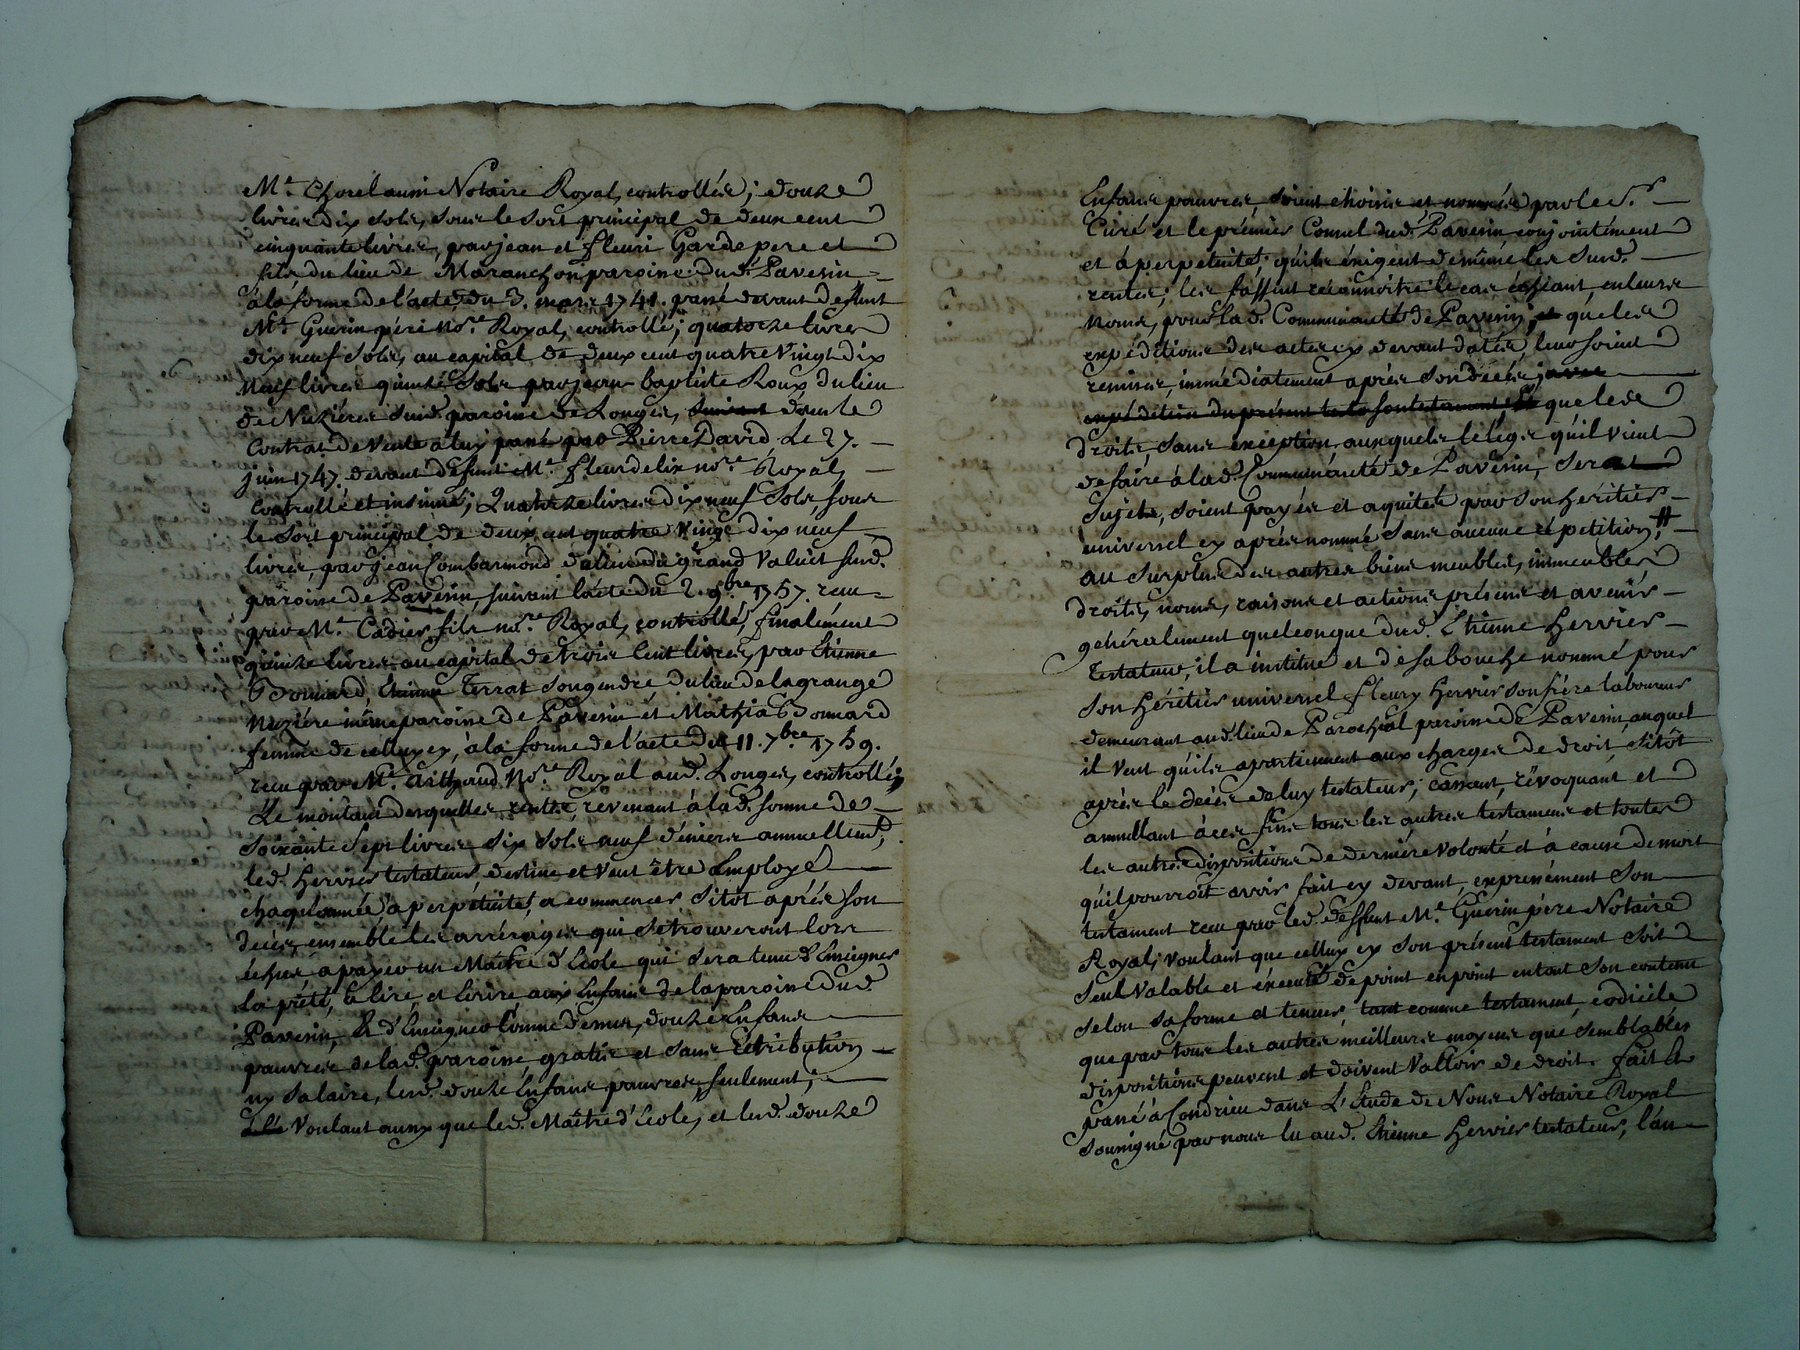 Me. Chorel aussi Notaire Royal, controllés; douze
livres dix sols, sous le sort principal de deux cent
cinquante livres, par jean et fleuri Garde pere et
fils du lieu de Maranchon paroisse dud. Pavesin
à la forme de l'acte du 3. mars 1741. passé devant deffunt
Me. Guerin pére nore. Royal, controllé; quatorze livres
dix neuf sols, au capital de deux cent quatre vingt dix
neuf livres quinze sols par jean baptiste Roux du lieu
de Nuziéres susd. paroisse de Longes, suivant dans le
contrat de vente à luy passé par Pierre David Le 27.
juin 1747. devant defunt Me. fleurdelix nore. Royal,
controllé et insinué; Quatorze livres dix neuf sols sous
le sort principal de deux cent quatre vingt dix neuf
livres, par jean Combarmond du lieu du grand Valuit susd.
paroisse de Pavesin, suivant l'acte du 2. 9bre. 1757. recu
par Me. Cadier fils nore. Royal, controllé, finalément
quinze livres au capital de trois cent livres, par Etienne
Bonnard, Etienne Terrat son gendre du lieu de lagrange
même paroisse de Pavesin et Mathia Bonnard
femme de celluy cy, à la forme de l'acte du 11. 7bre. 1759.
recu par Me. Arthaud Nore. Royal aud. Longes, controllé;
Le montant desquelles rentes, revenant à lad. somme de
soixante sept livres six sols neuf déniers annuellemt.,
led. Hervier testateur destine et veut être Employé
chaqu'année à perpétuité, a commencer sitôt après son
decès, ensemble les arrérages qui se trouveront lors
échus, à payer un Maitre d'Ecole qui sera tenu d'Enseigner
la piété, à lire, et Ecrire aux Enfans de la paroisse dud.
Pavesin, & d'Enseigner Comme dessus, douze Enfans
pauvres de lad. paroisse, gratis et sans rétribution
ny salaire, lesd. douze Enfans pauvres, seulement;
Voulant aussy que led. Maitre d'Ecole, et lesd. douze
Enfans pauvres soient choisis et nommés par le Sr.
Curé et le prémier Consul dud. Pavesin conjointément
et à perpetuité, qu'ils éxigent de même les susd.
rentes; les fassent reconnoitre le cas échéant, en leurs
noms, pour lad. Communauté de Pavesin, et que les
expéditions des actes cy devant datés, leur soient
remises, immédiatement après son decès, avec
expédition du présent que les
droits sans exception, auxquels le légs qu'il vient
de faire à lad. Communauté de Pavesin, sera
sujet, soient payés et aquités par son héritier
universel cy aprés nommé sans aucune répetition, #
au surplus des autres biens meubles, immeubles
droits, noms, raisons et actions présens et avenir
généralement quelconque dud. Etienne Hervier
Testateur, il a institué et de sa bouche nommé pour
son héritier universel fleury Hervier son frére laboureur
demeurant aud. lieu de Parochal paroisse de Pavesin, auquel
il veut qu'ils apartiennent aux charges de droit, sitôt
aprés le decès de luy testateur; cassant, révoquant et
annullant à ces fins tous les autres testamens et toutes
les autres dispositions de dernière volonté et à cause de mort
qu'il pourroit avoir fait cy devant, expressément son
testament recu par led. deffunt Me. Guerin pére Notaire
Royal, voulant que celluy cy son présent testament soit
seul valable et éxecuté de point en point en tout son contenu
selon sa forme et teneur, tant comme testament, codicile
que par tous les autres meilleurs moyens que semblables
dispositions peuvent et doivent valloir de droit. fait &
passé à Condrieu dans L'Etude de Nous Notaire Royal
soussigné par nous lu aud. Etienne Hervier testateur, l'an